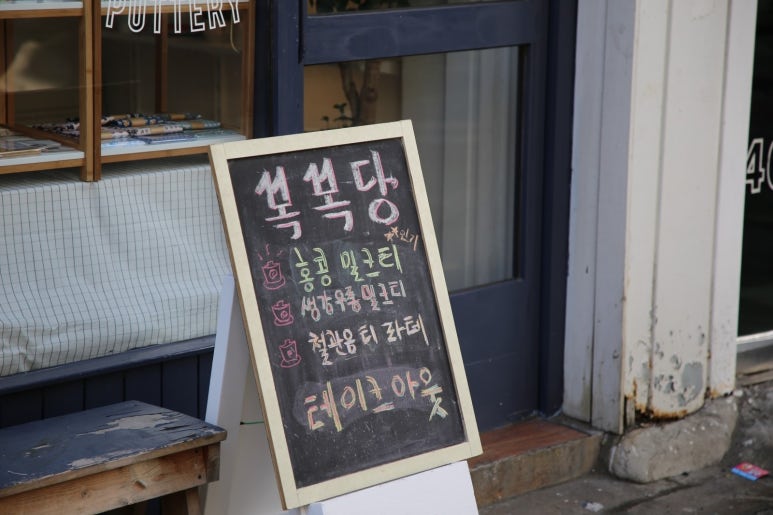 POTTERY
쏙쏙당
인기
홍콩 밀크티
생강우롱밀크티
철관음티 라떼
테이크아웃
40